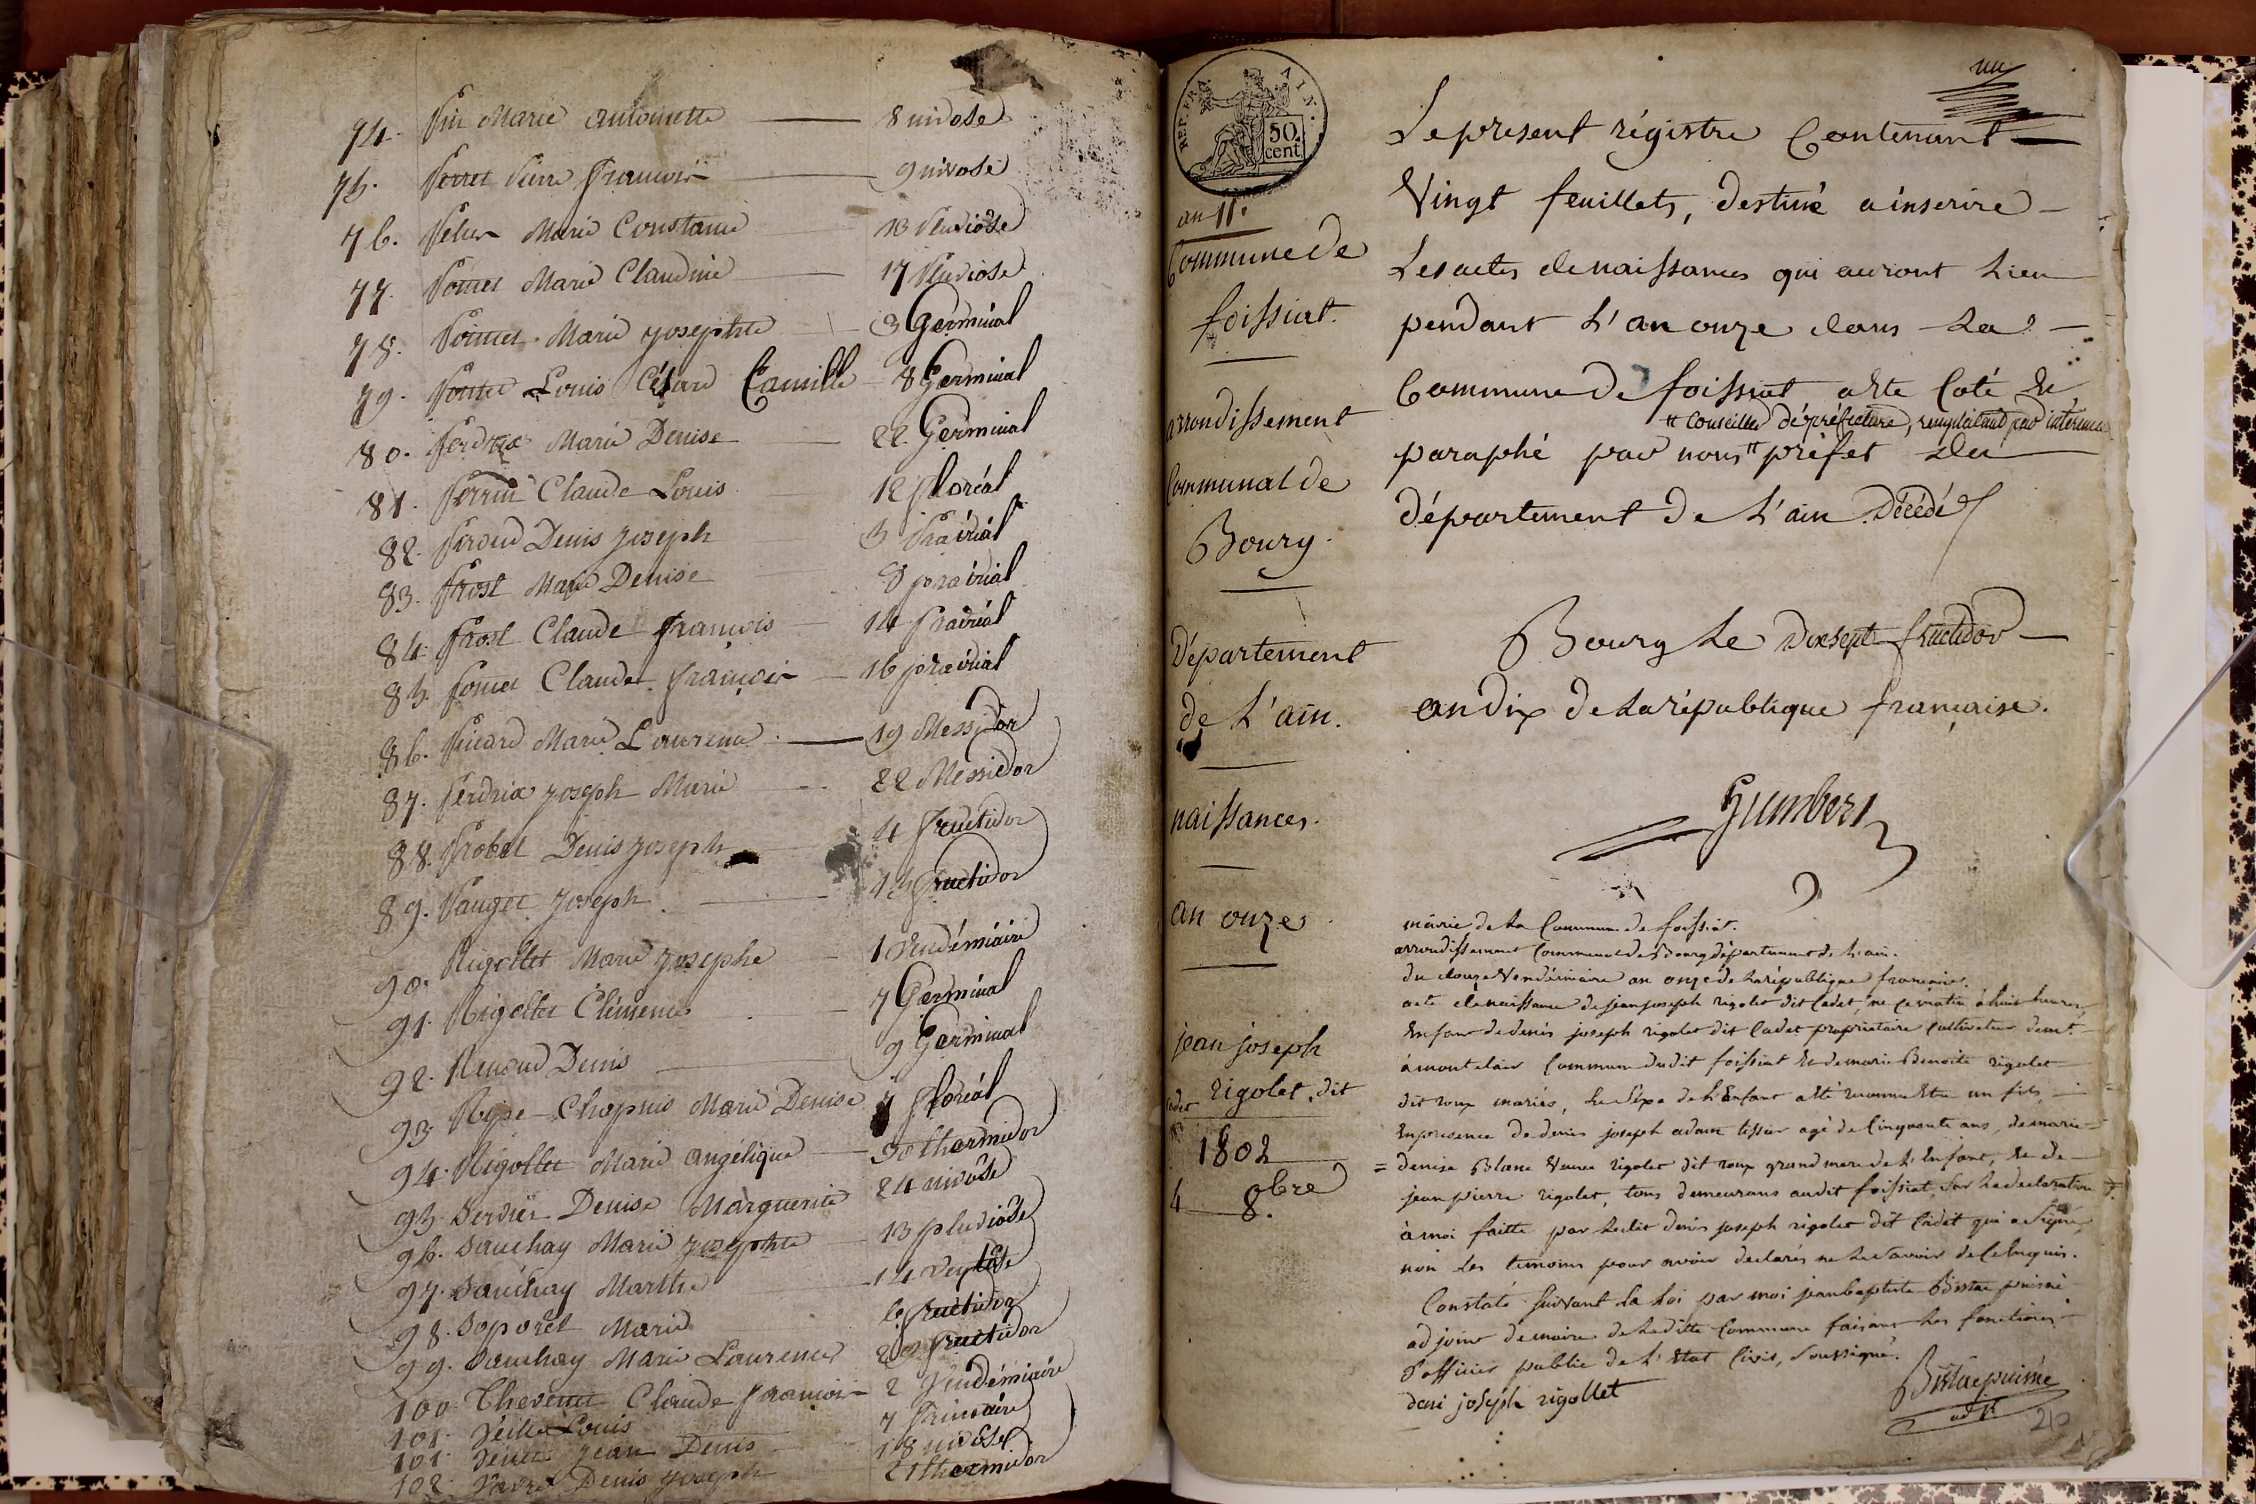 74. Pin Marie antoinette — 8 nivose
75. Perret Pierre françois — 9 nivose
76. Marie Constance 13 Pluviôse
77. Pomet Marie Claudine — 17 Pluviose
78. Pomet Marie josephte — 3 Germinal
79. Pomet Louis César Camille — 8 Germinal
80. Perdrix Marie Denise — 22 Germinal
81. Perrin Claude Louis 12 floréal
82. Piroud Denis joseph 3 Prairial
83. Prost Marie Denise 8 prairial
84. Prost Claude françois — 14 Prairial
85. pomet Claude françois — 16 prairial
86. Picard Marie Laurence — 19 Messidor
87. Perdrix joseph Marie — 22 Messidor
88. Probet Denis joseph 4 fructidor
89. Pauget joseph 13 fructidor
90. Rigollet Marie josephe — 1 Vendémiaire
91. Rigollet Clémence — 7 Germinal
92. Renoud Denis — 9 Germinal
93. Rype-Chapuis Marie Denise 7 floréal
94. Rigollet Marie angélique — 30 thermidor
95. Servier Denise Marguerite 24 nivôse
96. Sauchay Marie josephte — 13 pluviôse
97. Sauchay Marthe 14 Ventôse
98. Soporet Marie 6 fructidor
99. Sauchay Marie Laurence 20 fructidor
100. Thevenet Claude françois — 2 Vendémiaire
101. Louis 7 frimaire
101. jean Denis 18 nivôse
102. Denis joseph 21 thermidor
REP. FRA. AIN.
50.
cent.
an 11.
Commune de
foissiat.
arrondissement
Communal de
Bourg.
Département
de L'ain.
naissances.
an onze
jean joseph
rigolet, dit
cadet
1802
4 8.bre
un
Le present régistre Contenant —
Vingt feuillets, destiné a inserire —
Les actes de naissances qui auront Lieu
pendant L'an onze dans La —
Commune de foissiat a été Coté Et
" Conseiller de préfecture, remplaçant par interim
paraphé par nous " préfet du
département de L'ain. Décédé
Bourg Le Dix sept fructidor —
an dix de La république française.
Gumbert
mairie de La Commune de foissiat.
arrondissement Communal de Bourg département de L'ain.
du douze Vendémiaire an onze de La république française.
acte de naissance de jean joseph rigolet dit Cadet, né Ce matin à huit heures,
Enfant de denis joseph rigolet dit Cadet propriétaire Cultivateur demt.
à montclair Commune dudit foissiat Et de marie Benoite rigolet
dit roux mariés, Le Sexe de L'Enfant a été reconnu Etre un fils, —
En presence de denis joseph adam tissier agé de Cinquante ans, de marie
= denise Blanc Veuve rigolet dit roux grand mere de L'Enfant, Et de —
jean pierre rigolet, tous demeurans audit foissiat, Sur La declaration
à moi faitte par Ledit denis joseph rigolet dit Cadet qui a Signé,
non les temoins pour avoir declarés ne Le Savoir de Ce Enquis.
Constaté Suivant La Loi par moi jean baptiste Bistac puisné
adjoint de maire de Laditte Commune faisant Les fonctions
d'officier public de L'Etat Civil, Soussigné.
deni joséph rigollet
Bistac puisné
adt
210